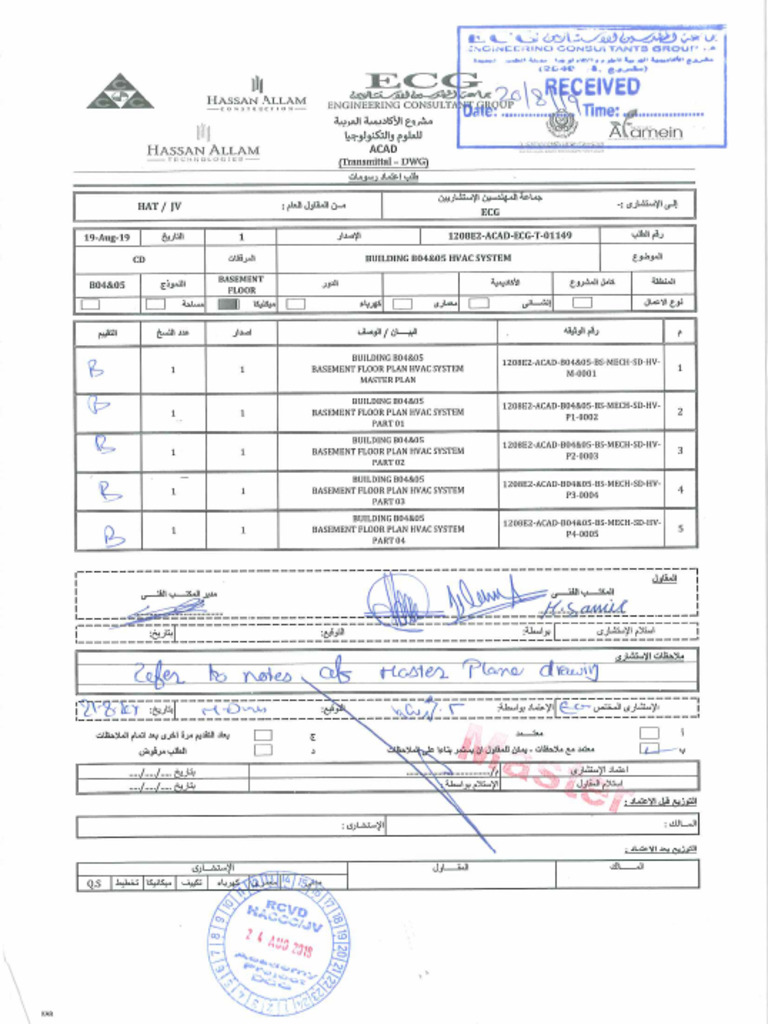 ECG
جماعة المهندسين الإستشاريين
ENGINEERING CONSULTANTS GROUP S.A
RECEIVED
Date: 20/8/19 Time:
CCC
HASSAN ALLAM
CONSTRUCTION
HASSAN ALLAM
TECHNOLOGIES
ECG
جماعة المهندسين الإستشاريين
ENGINEERING CONSULTANTS GROUP
Alamein
مشروع الأكاديمية العربية
للعلوم والتكنولوجيا
ACAD
(Transmittal – DWG)
طلب اعتماد رسومات
إلى الإستشارى :- جماعة المهندسين الإستشاريين ECG من المقاول العام : HAT / JV
رقم الطلب 1208E2-ACAD-ECG-T-01149 الإصدار 1 التاريخ 19-Aug-19
الموضوع BUILDING B04&05 HVAC SYSTEM المرفقات CD
المنطقة كامل المشروع الأكاديمية الدور BASEMENT FLOOR النموذج B04&05
نوع الاعمال إنشائى معمارى كهرباء ميكانيكا مساحة
م رقم الوثيقه البيـــان / الوصف اصدار عدد النسخ التقييم
1 1208E2-ACAD-B04&05-BS-MECH-SD-HV-M-0001 BUILDING B04&05 BASEMENT FLOOR PLAN HVAC SYSTEM MASTER PLAN 1 1 B
2 1208E2-ACAD-B04&05-BS-MECH-SD-HV-P1-0002 BUILDING B04&05 BASEMENT FLOOR PLAN HVAC SYSTEM PART 01 1 1 B
3 1208E2-ACAD-B04&05-BS-MECH-SD-HV-P2-0003 BUILDING B04&05 BASEMENT FLOOR PLAN HVAC SYSTEM PART 02 1 1 B
4 1208E2-ACAD-B04&05-BS-MECH-SD-HV-P3-0004 BUILDING B04&05 BASEMENT FLOOR PLAN HVAC SYSTEM PART 03 1 1 B
5 1208E2-ACAD-B04&05-BS-MECH-SD-HV-P4-0005 BUILDING B04&05 BASEMENT FLOOR PLAN HVAC SYSTEM PART 04 1 1 B
المقاول
المكتب الفنى مدير المكتب الفنى
H.Samir
استلام الإستشارى بواسطة: التوقيع: بتاريخ:
ملاحظات الإستشارى
Refer to notes Master Plane drawing
الإستشارى المختص ECG الإعتماد بواسطة: التوقيع: بتاريخ:
أ معتمد ج يعاد التقديم مرة اخرى بعد اتمام الملاحظات
ب معتمد مع ملاحظات - يمكن للمقاول ان يستمر بناءا على الملاحظات د الطلب مرفوض
Master
اعتماد الإستشارى بتاريخ .../.../...
إستلام المقاول الإستلام بواسطة : بتاريخ .../.../...
التوزيع قبل الاعتماد :
المالك : الإستشارى :
التوزيع بعد الاعتماد :
المـــالك المقـــاول الإستشارى
معمارى كهرباء تكييف ميكانيكا تخطيط Q.S
RCVD
HACCC/JV
24 AUG 2019
Academy
Project